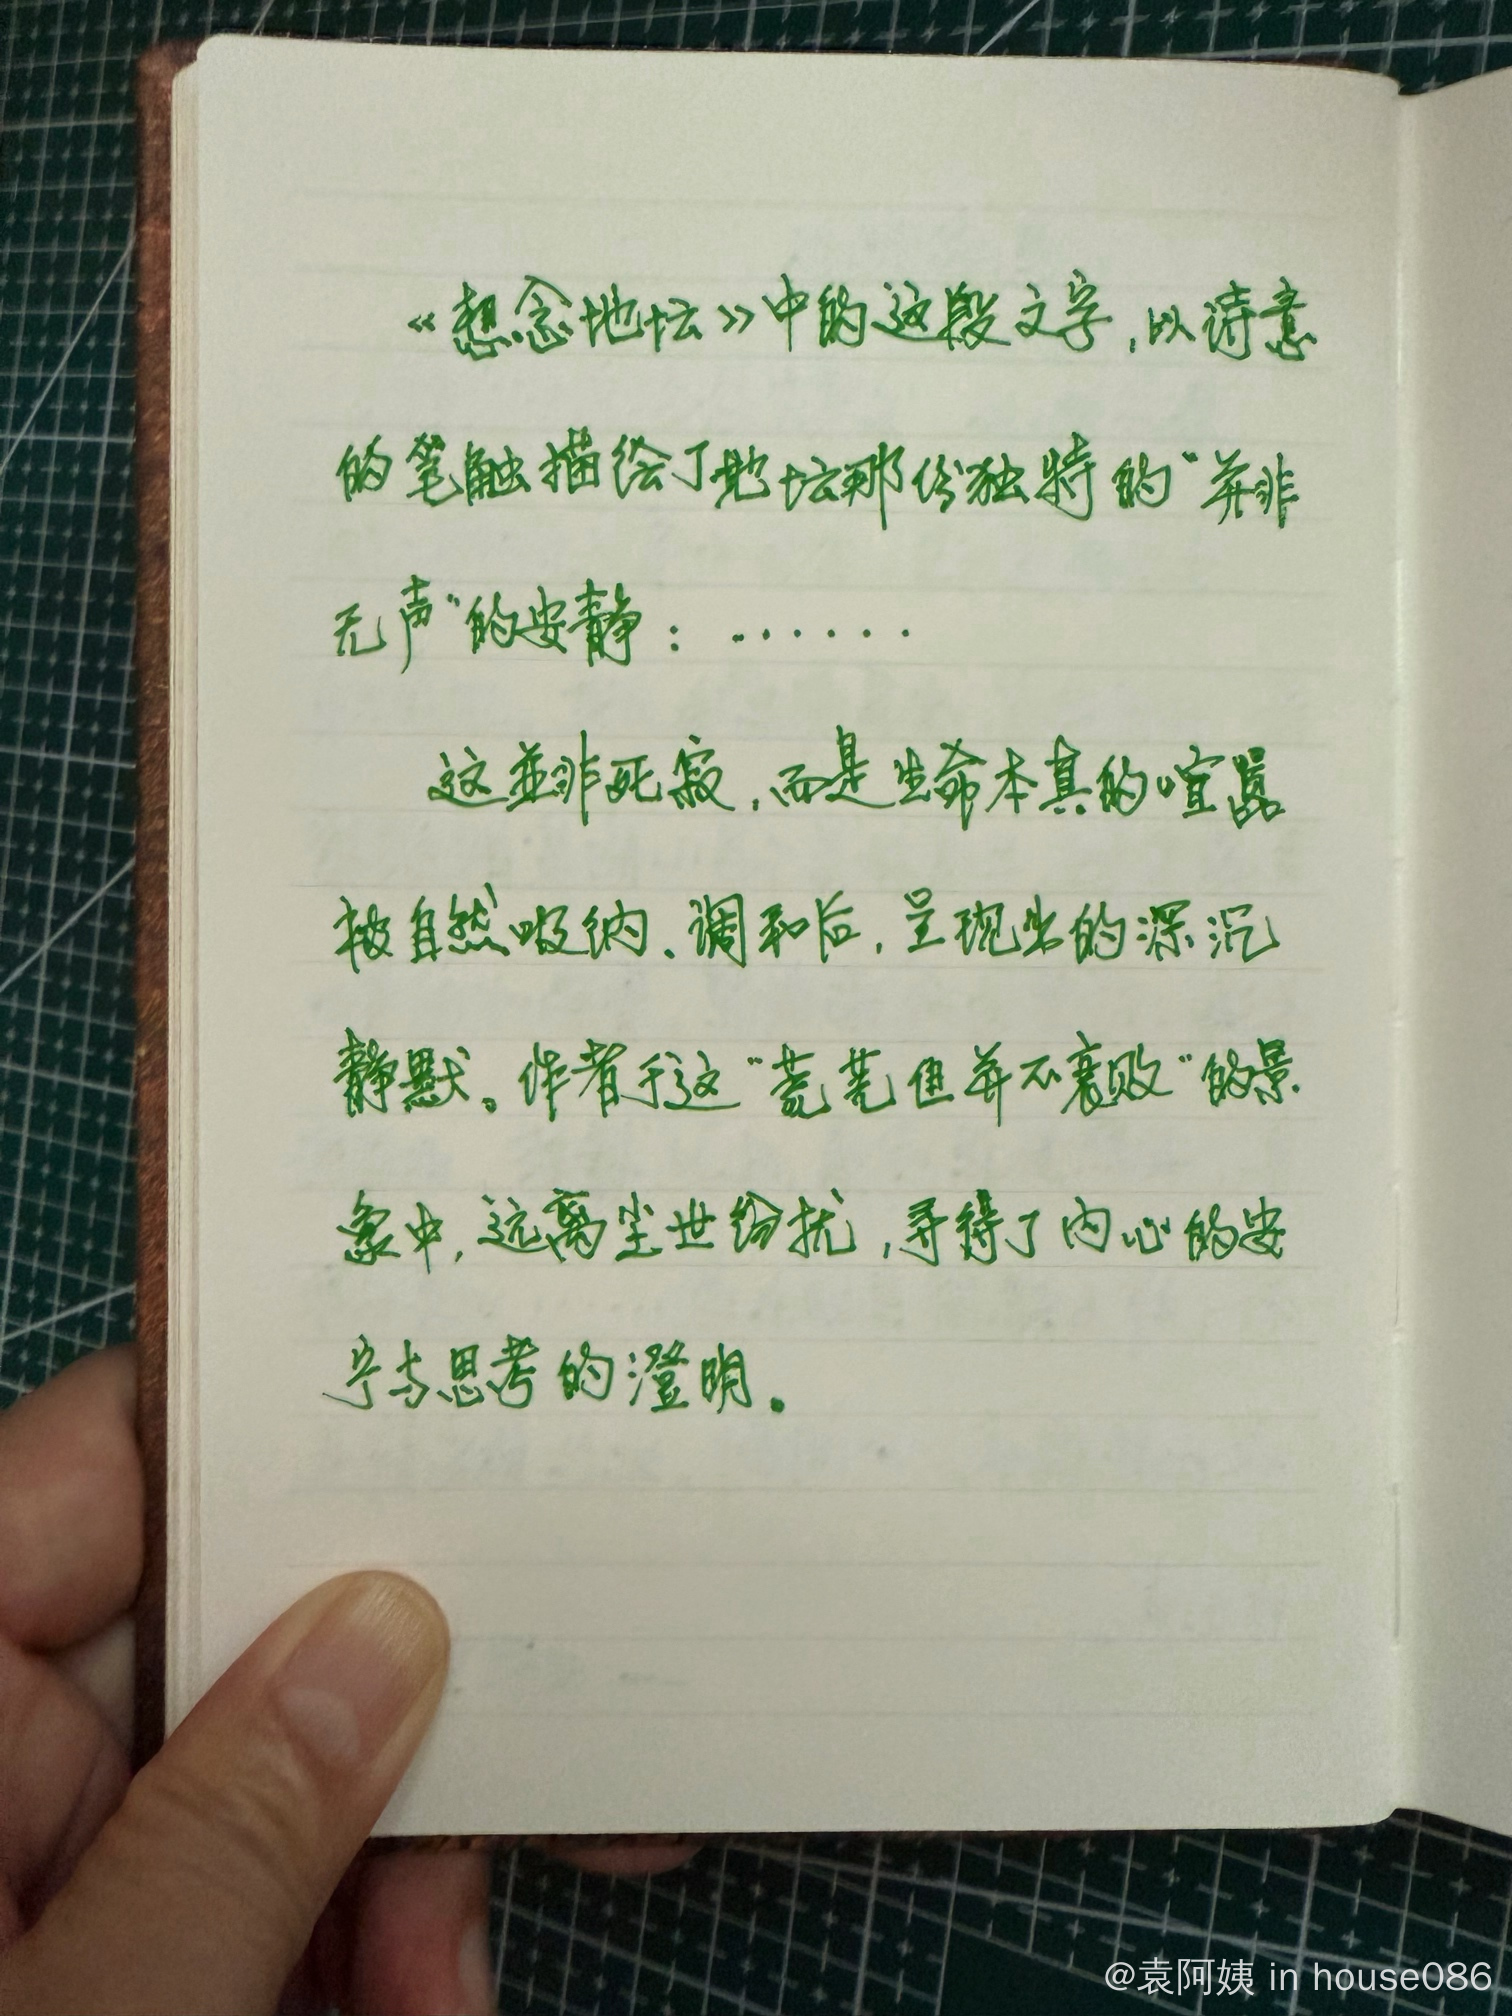 《想念地坛》中的这段文字,以诗意
的笔触描绘了地坛那份独特的“并非
无声”的安静:……
这並非死寂,而是生命本真的喧嚣
被自然吸纳、调和后,呈现出的深沉
静默。作者于这“荒芜但并不衰败”的景
象中,远离尘世纷扰,寻得了内心的安
宁与思考的澄明。
@袁阿姨 in house086